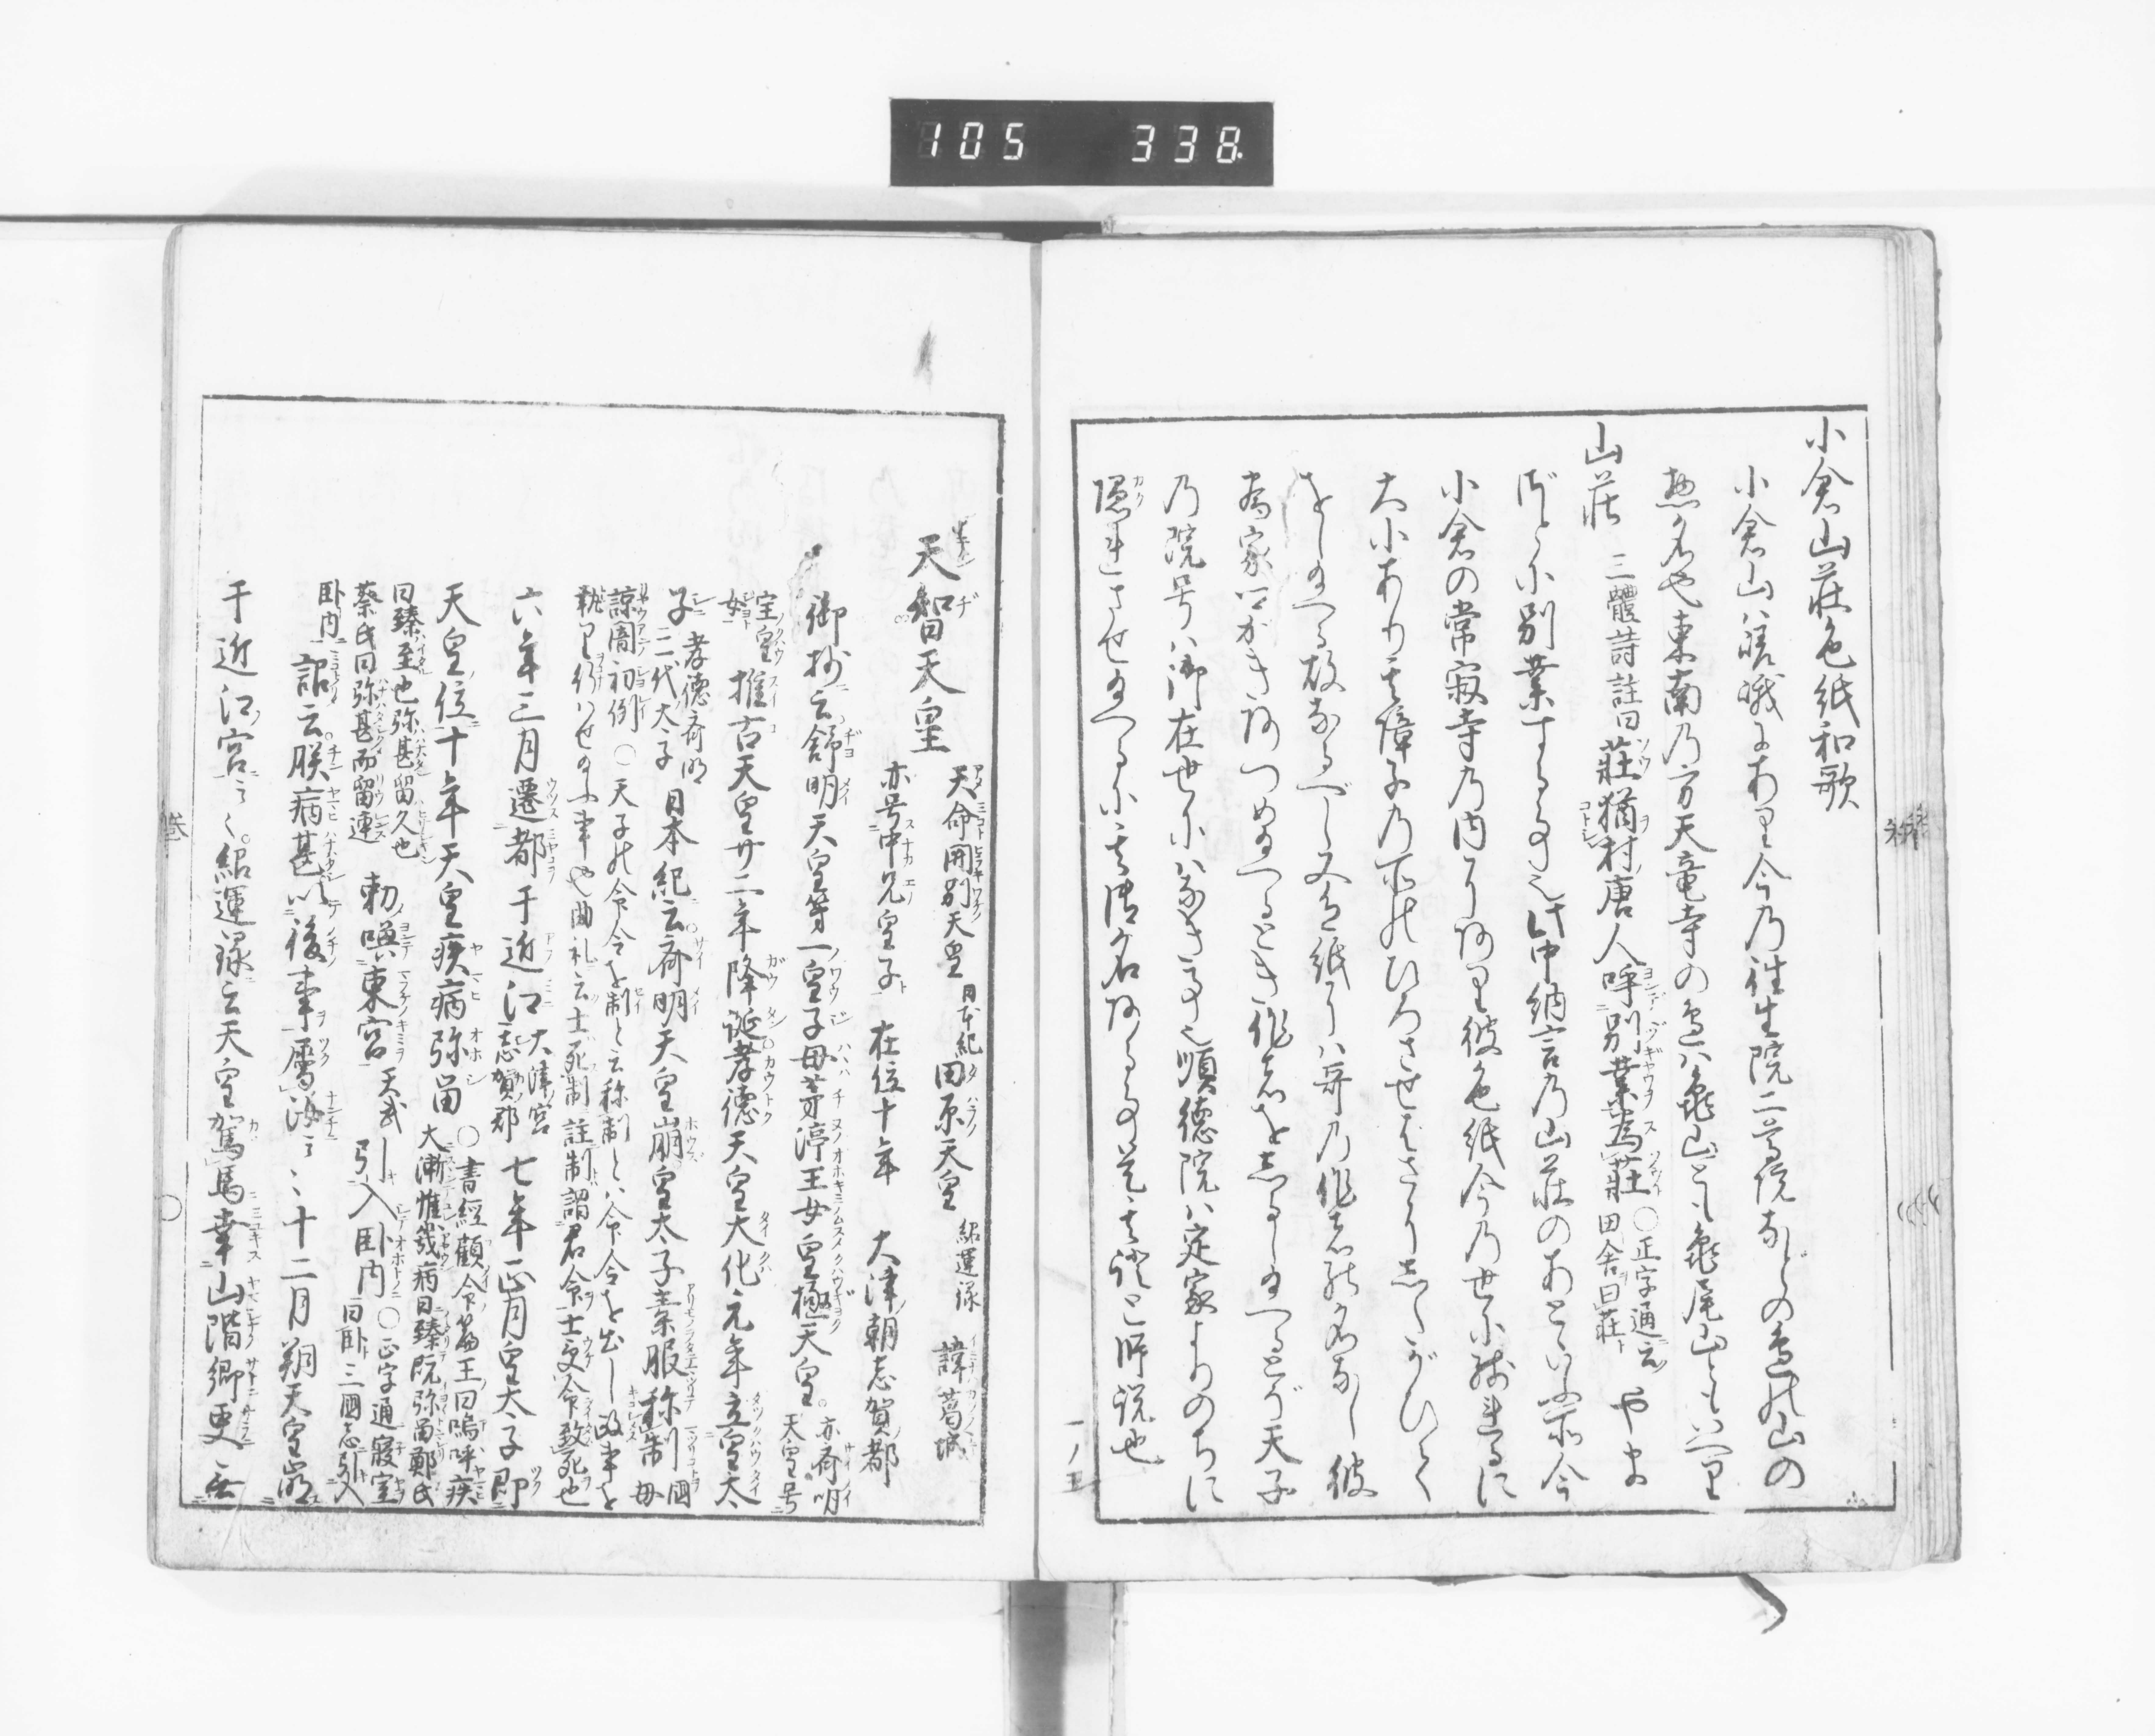 105 338
小倉山荘色紙和歌
小倉山ハ嵯峨にあり今乃往生院二尊院などの邊山の
惣名也東南乃方天竜寺の邊ハ龜山とも龜尾山ともいへり
山荘 三體詩註曰荘猶村唐人呼別業為荘 ○正字通云田舎曰荘 やま
ざとに別業する事也中納言乃山荘のあとゝいふ所今
小倉の常寂寺乃内にあり彼色紙今乃世に残れるに
大小あり其障子乃
をし給へる故なるべし又色紙にハ哥乃作者の名なし彼
為家にかきあつめ給へるとき作者をしるし給へるとぞ天子
乃院号ハ御在世にハなき事也順徳院ハ定家よりのちに
隠れさせ給へるに其御名ある事是其證と師説也
一ノ五
天智天皇 天命開別天皇 日本紀 田原天皇 紹運録 諱葛城
亦号中兄皇子 在位十年 大津朝志賀都
御抄云舒明天皇第一皇子母茅渟王女皇極天皇 亦斉明天皇号
宝皇女 推古天皇廿二年降誕孝徳天皇大化元年立皇太
子 孝徳斉明二代太子 日本紀云斉明天皇崩皇太子素服称制 國母
諒闇初例 ○天子の命令を制と云称制とハ命令を出し政事を
執り行ハせ給ふ事也曲礼云士死制註制謂君命士受命致死也
六年三月遷都于近江 大津宮志賀郡 七年正月皇太子即
天皇位十年天皇疾病弥留 ○書經顧命篇王曰嗚呼疾大漸惟幾病日臻既弥留鄭氏
曰臻至也弥甚留久也
蔡氏曰弥甚而留連 勅喚東宮 天武 引入卧内 ○正字通寝室曰卧三國志引入
卧内 詔云朕病甚以後事属汝云々十二月朔天皇崩
于近江宮云々紹運録云天皇駕馬幸山階郷更無